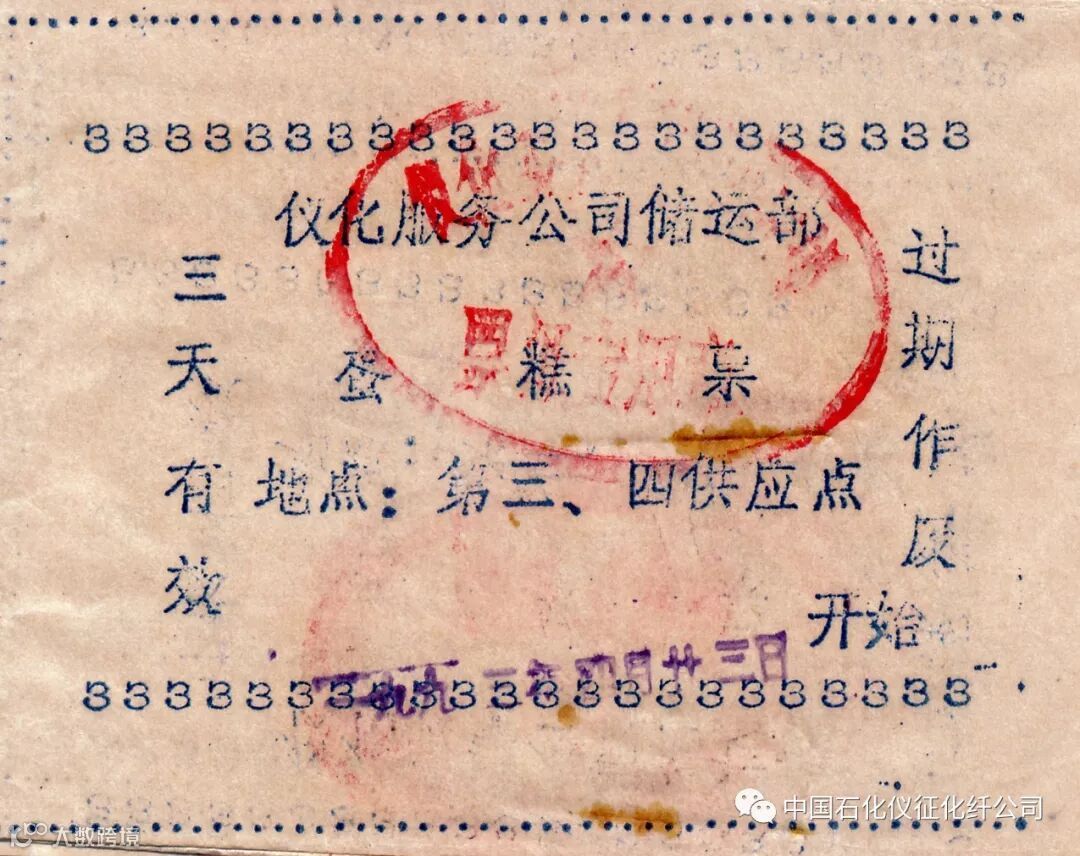 3333333333333333333333
仪化服务公司储运部
三天有效
蛋糕票
地点：第三、四供应点
过期作废
开始
年四月廿三日
3333333333333333333333
中国石化仪征化纤公司
大数跨境